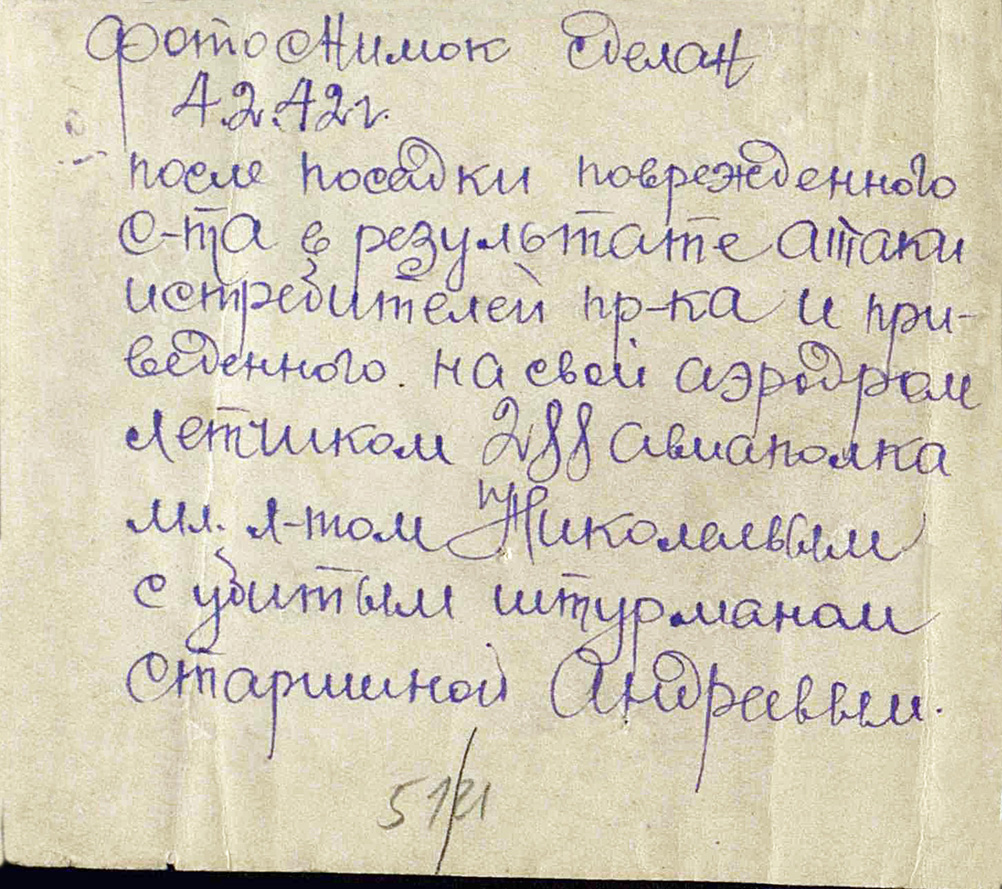 фотоснимок сделан
4.2.42г.
после посадки поврежденного
с-та в результате атаки
истребителей пр-ка и при-
веденного на свой аэродром
летчиком 288 авиаполка
мл. л-том Николаевым
с убитым штурманом
старшиной Андреевым.